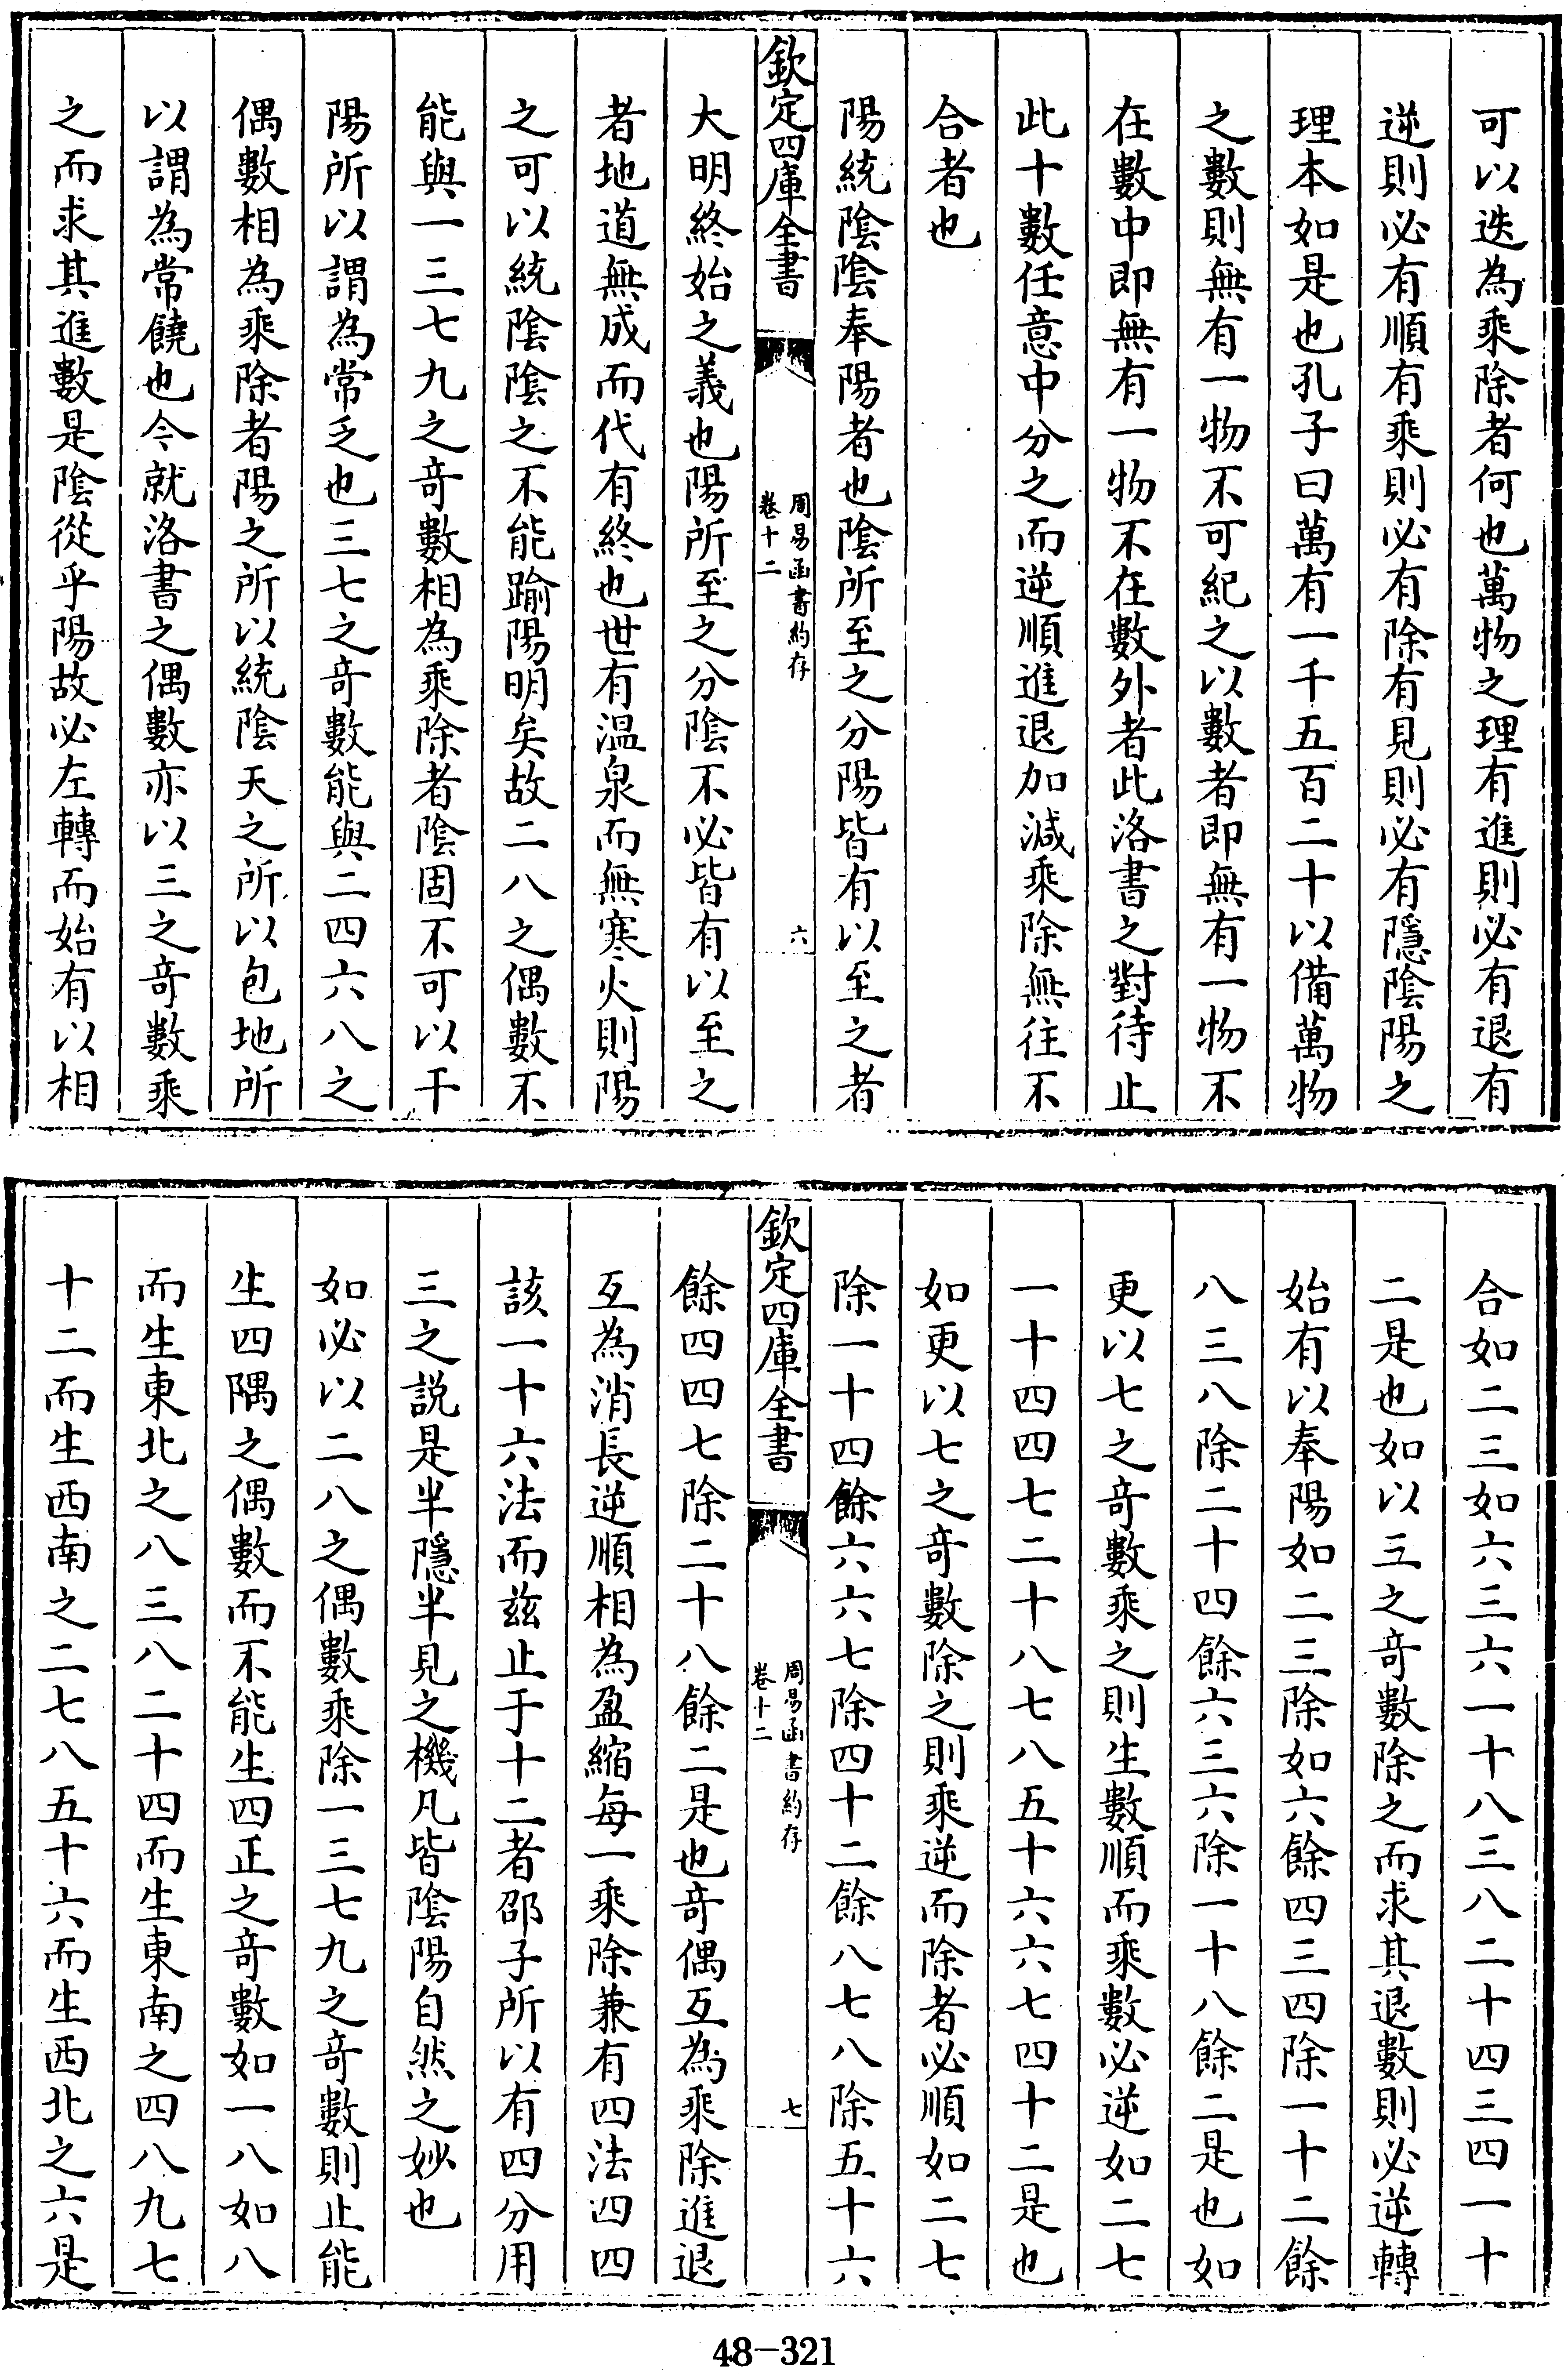 可以迭為乘除者何也萬物之理有進則必有退有
逆則必有順有乘則必有除有見則必有隱陰陽之
理本如是也孔子曰萬有一千五百二十以備萬物
之數則無有一物不可紀之以數者即無有一物不
在數中即無有一物不在數外者此洛書之對待止
此十數任意中分之而逆順進退加減乘除無往不
合者也
陽統陰陰奉陽者也陰所至之分陽皆有以至之者
欽定四庫全書
周易函書約存
卷十二
六
大明終始之義也陽所至之分陰不必皆有以至之
者地道無成而代有終也世有温泉而無寒火則陽
之可以統陰陰之不能踰陽明矣故二八之偶數不
能與一三七九之竒數相為乘除者陰固不可以干
陽所以謂為常乏也三七之竒數能與二四六八之
偶數相為乘除者陽之所以統陰天之所以包地所
以謂為常饒也今就洛書之偶數亦以三之竒數乘
之而求其進數是陰從乎陽故必左轉而始有以相
合如二三如六三六一十八三八二十四三四一十
二是也如以三之竒數除之而求其退數則必逆轉
始有以奉陽如二三除如六餘四三四除一十二餘
八三八除二十四餘六三六除一十八餘二是也如
更以七之竒數乘之則生數順而乘數必逆如二七
一十四四七二十八七八五十六六七四十二是也
如更以七之竒數除之則乘逆而除者必順如二七
除一十四餘六六七除四十二餘八七八除五十六
欽定四庫全書
周易函書約存
卷十二
七
餘四四七除二十八餘二是也竒偶互為乘除進退
互為消長逆順相為盈縮每一乘除兼有四法四四
該一十六法而兹止于十二者邵子所以有四分用
三之説是半隱半見之機凡皆陰陽自然之妙也
如必以二八之偶數乘除一三七九之竒數則止能
生四隅之偶數而不能生四正之竒數如一八如八
而生東北之八三八二十四而生東南之四八九七
十二而生西南之二七八五十六而生西北之六是
48-321